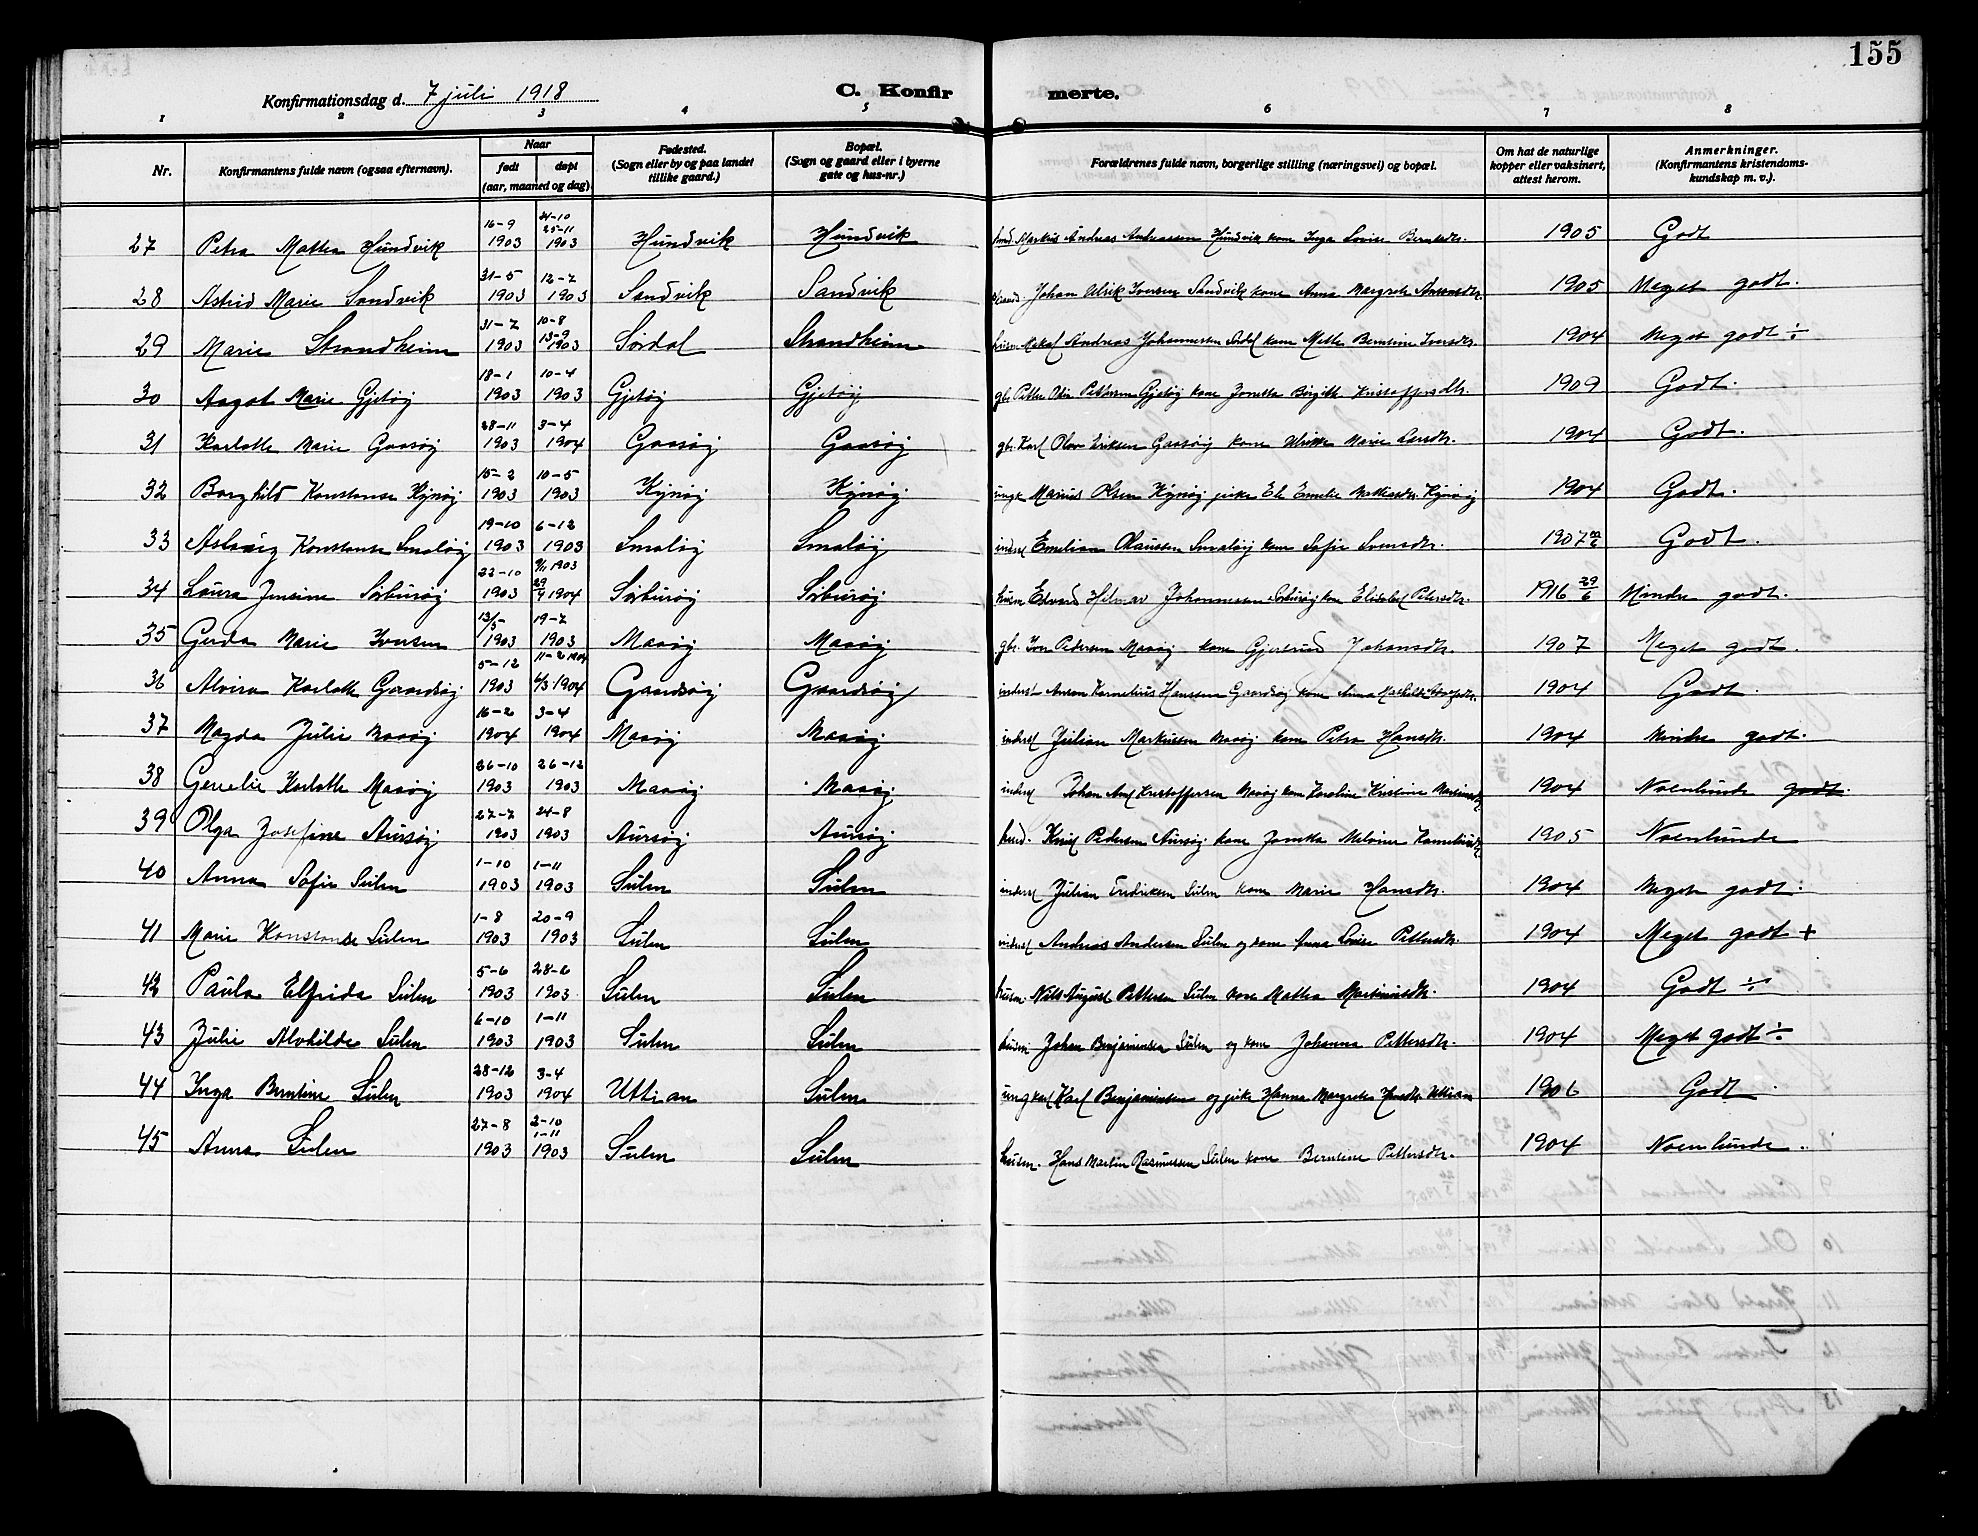 155
Konfirmationsdag d. 7 juli 1918 C. Konfirmerte.
1 2 3 4 5 6 7 8
Nr. Konfirmantens fulde navn (ogsaa efternavn). Naar født døpt (aar, maaned og dag) Fødested. (Sogn eller by og paa landet tillike gaard.) Bopæl. (Sogn og gaard eller i byerne gate og hus-nr.) Forældrenes fulde navn, borgerlige stilling (næringsvei) og bopæl. Om hat de naturlige kopper eller vaksinert, attest herom. Anmerkninger. (Konfirmantens kristendomskundskap m. v.).
27 Petra Mattea Hundvik 16-9 1903 24-10 25-11 1903 Hundvik Hundvik Markus Andreas Andreassen Hundvik kone Inga Lovise Berntsdtr. 1905 Godt
28 Astrid Marie Sandvik 31-5 1903 12-7 1903 Sandvik Sandvik Johan Ulrik Iversen Sandvik kone Anna Margrete 1905 Meget godt.
29 Marie Strandheim 31-7 1903 10-8 13-9 1903 Sørdal Strandheim Andreas Johannessen Sørdal kone Mette Berntine Iversdtr. 1904 Meget godt ÷
30 Aagot Marie Gjetøy 18-1 1903 10-4 1903 Gjetøy Gjetøy gbr. Petter Odin Pettersen Gjetøy kone Jonetta Birgitte Kristoffersdtr. 1909 Godt.
31 Karlotte Marie Gaasøy 28-11 1903 3-4 1904 Gaasøy Gaasøy gbr. Karl Olav Eriksen Gaasøy kone Ulrikke Marie Larsdtr. 1904 Godt.
32 Borghild Konstanse Kjnøy 15-2 1903 10-5 1903 Kjnøy Kjnøy ungk. Marius Olsen Kjnøy pike Emelie 1904 Godt.
33 Aslaug Konstanse Smaløy 19-10 1903 6-12 1903 Smaløy Smaløy inderst Emelian Olaussen Smaløy kone Sofie Svensdtr. 1907 Godt.
34 Laura Jensine Sørburøy 22-10 1903 9/11 1903 29/4 1904 Sørburøy Sørburøy husm. Edvard Hilmar Johannessen Sørburøy kone Elisabet Petersdtr. 1916 29/6 Mindre godt.
35 Gerda Marie Iversen 13/5- 1903 19-7 1903 Maasøy Maasøy gbr. Iver Pedersen Maasøy kone Gjertrud Johansdtr. 1907 Meget godt.
36 Alvira Karlotte Gaardsøy 5-12 1903 11-2 1904 4/3 1904 Gaardsøy Gaardsøy inderst Anton Kornelius Hanssen Gaardsøy kone Anna Mathilde 1904 Godt.
37 Magda Julie Maasøy 16-2 1904 3-4 1904 Maasøy Maasøy inderst Julian Markussen Maasøy kone Petra Hansdtr. 1904 Mindre godt.
38 Karlotte Maasøy 26-10 1903 26-12 1903 Maasøy Maasøy inderst Johan Kristoffersen Maasøy kone Karoline Kristine 1904 Noenlunde godt.
39 Olga Josefine Aursøy 27-7 1903 24-8 1903 Aursøy Aursøy Knut Pedersen Aursøy kone Jonetta 1905 Noenlunde
40 Anna Sofie Sulen 1-10 1903 1-11 1903 Sulen Sulen inderst Julian Fredriksen Sulen kone Marie Hansdtr. 1904 Meget godt.
41 Marie Konstanse Sulen 1-8 1903 20-9 1903 Sulen Sulen inderst Andreas Andersen Sulen og kone Anna Lovise Pettersdtr. 1904 Meget godt +
42 Paula Elfrida Sulen 5-6 1903 28-6 1903. Sulen Sulen husm. Nils August Pettersen Sulen kone Mattea Martinusdtr. 1904 Godt ÷
43 Julie Alvhilde Sulen 6-10 1903 1-11 1903 Sulen Sulen husm. Johan Benjaminsen Sulen og kone Johanna Pettersdtr. 1904 Meget godt ÷
44 Inga Berntine Sulen 28-12 1903 3-4 1904 Uttian Sulen ungkarl Karl Benjaminsen og pike Hanna Margrete Uttian 1906 Godt.
45 Anna Sulen 27-8 1903 2-10 1-11 1903 Sulen Sulen husm. Hans Martin Rasmussen Sulen kone Berntine Pettersdtr. 1904 Noenlunde.